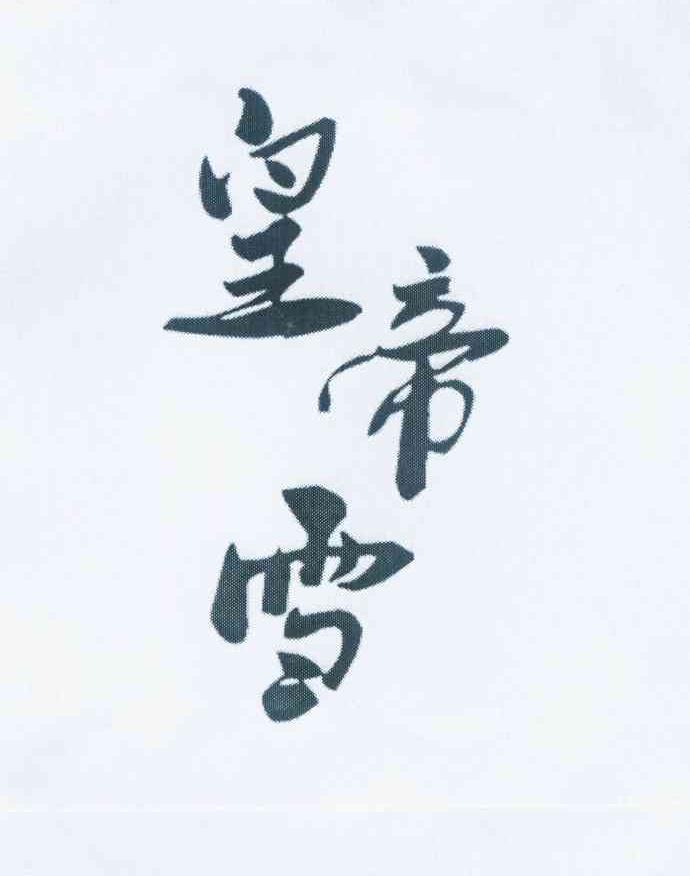 皇帝雪